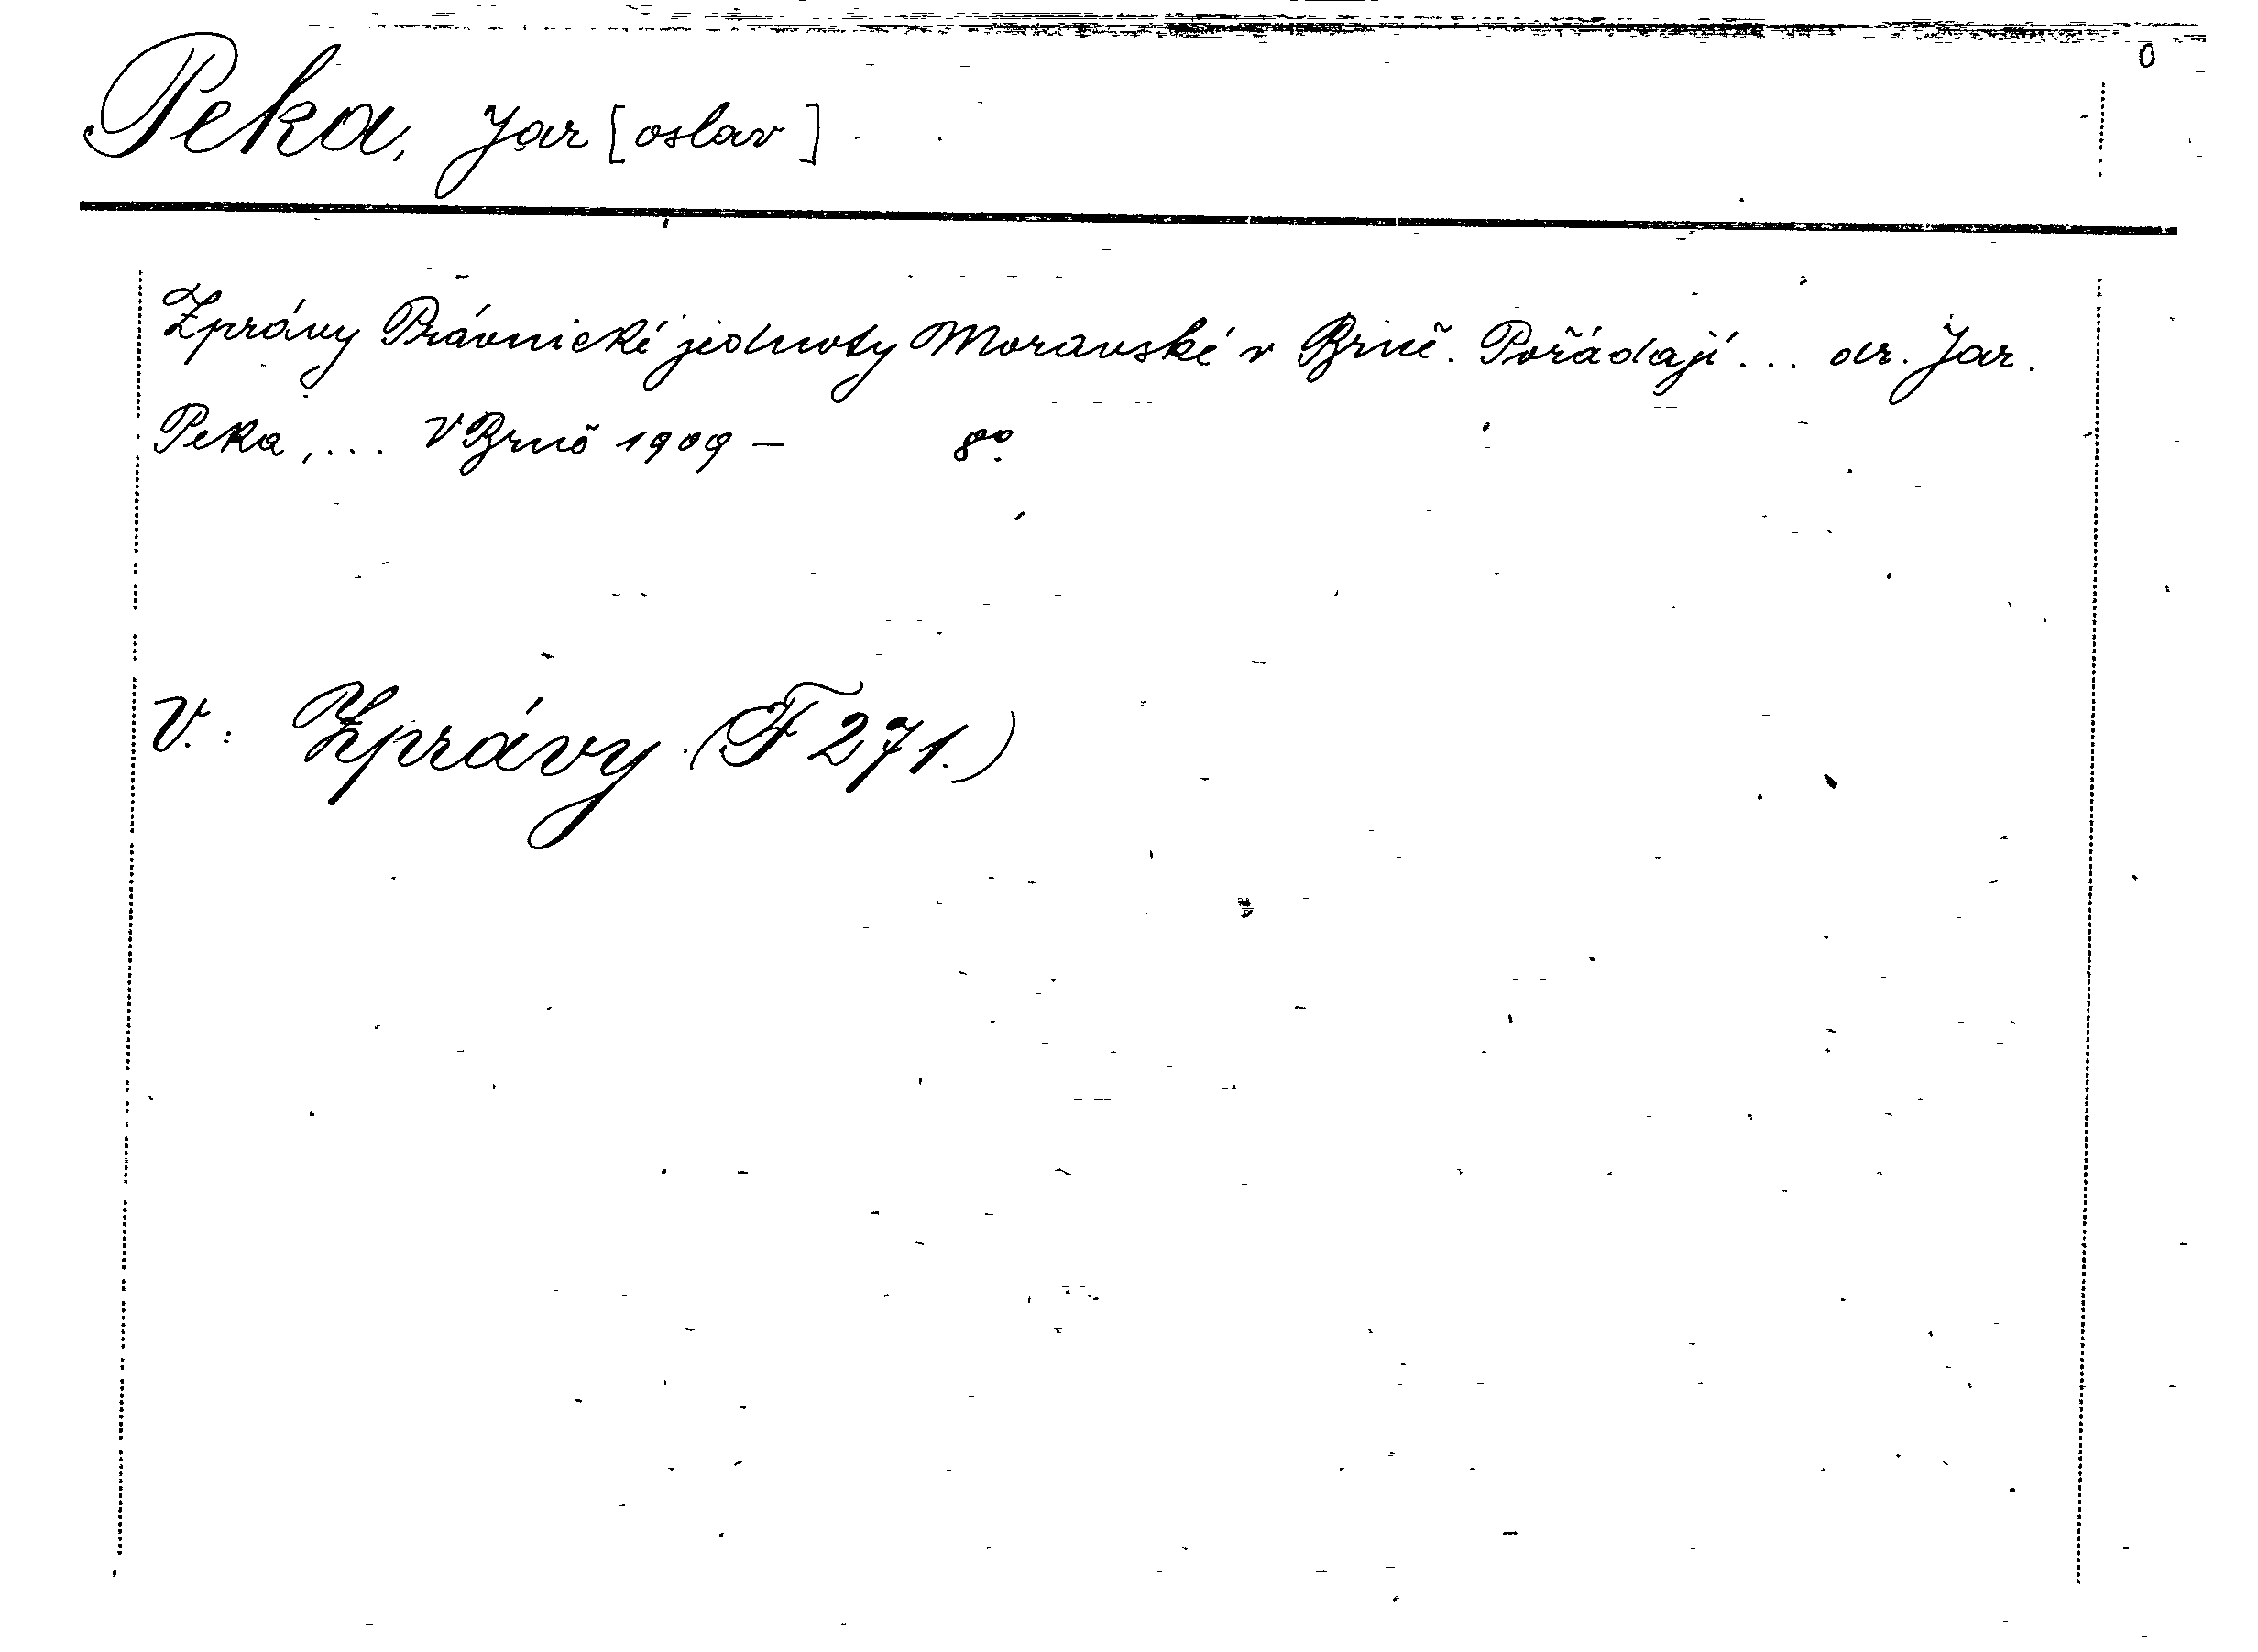 0
Peka, Jar[oslav]
Zprávy Právnické jednoty Moravské v Brně. Pořádají ... dr. Jar.
Peka, ... V Brně 1909 – 8º.
V.: Zprávy (F 271.)